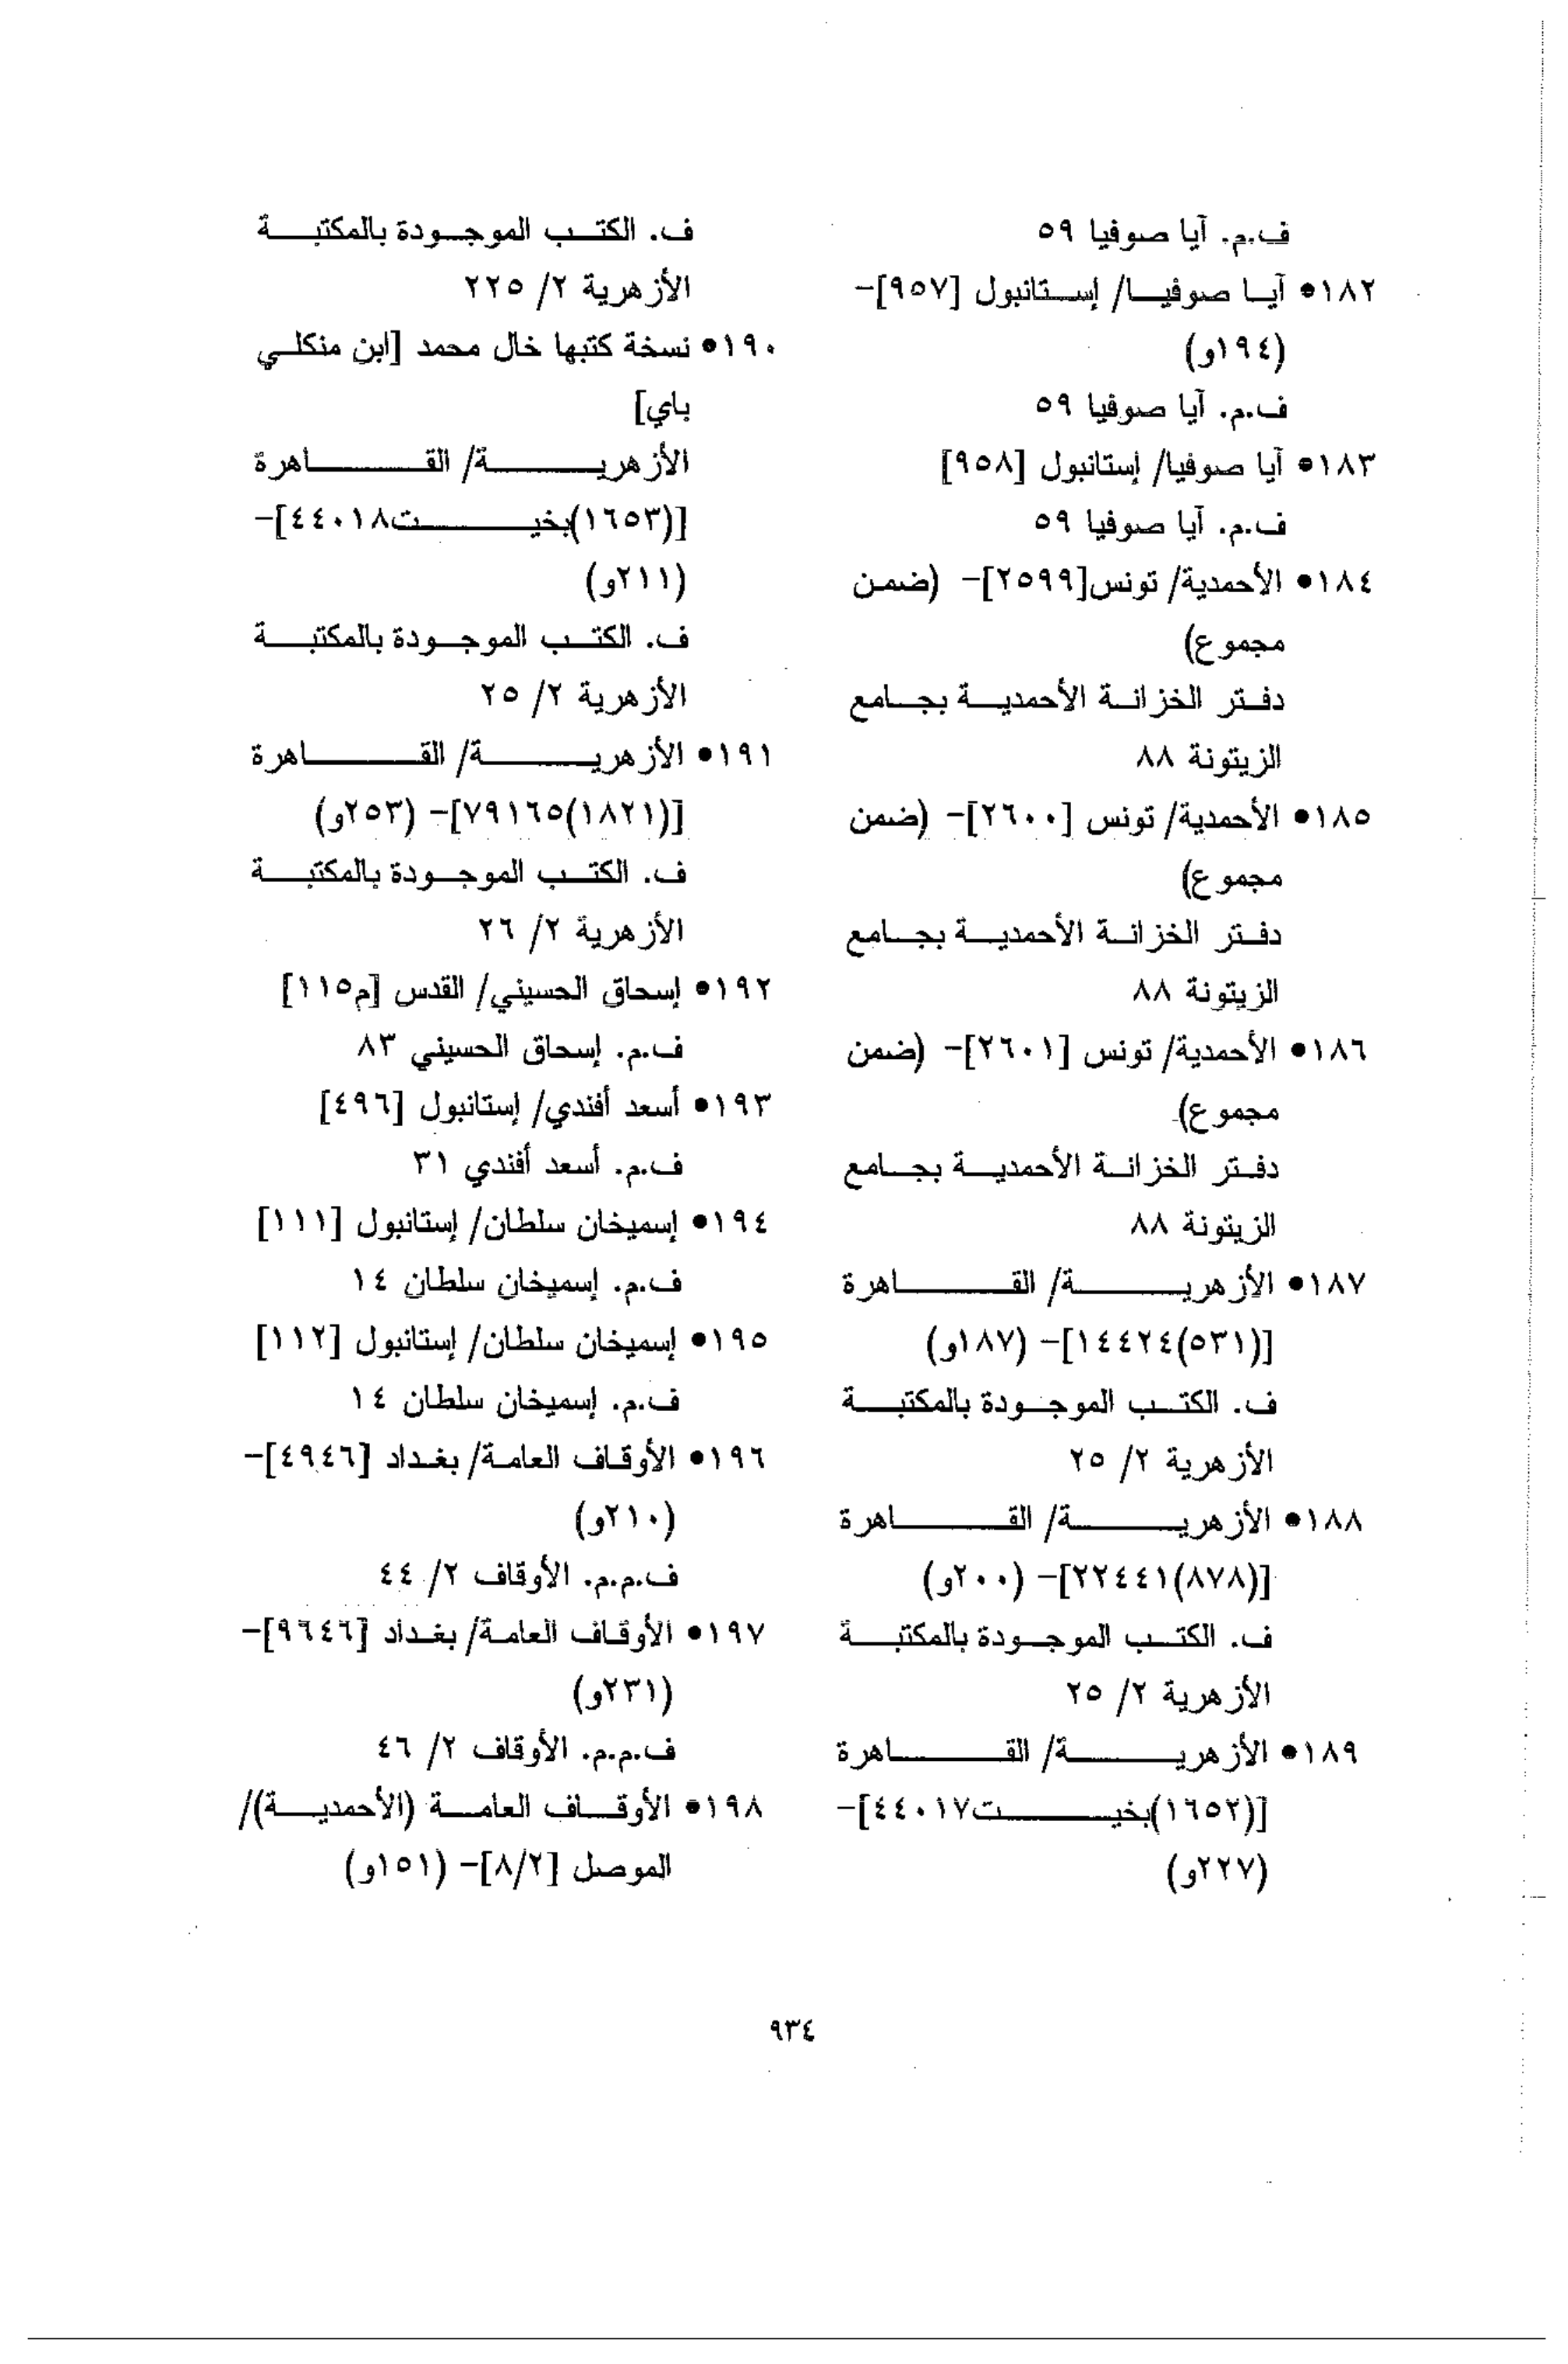 ف.م. آيا صوفيا ٥٩
١٨٢• آيا صوفيا/ إستانبول [٩٥٧]-
(١٩٤و)
ف.م. آيا صوفيا ٥٩
١٨٣• آيا صوفيا/ إستانبول [٩٥٨]
ف.م. آيا صوفيا ٥٩
١٨٤• الأحمدية/ تونس[٢٥٩٩]- (ضمن
مجموع)
دفتر الخزانة الأحمدية بجامع
الزيتونة ٨٨
١٨٥• الأحمدية/ تونس [٢٦٠٠]- (ضمن
مجموع)
دفتر الخزانة الأحمدية بجامع
الزيتونة ٨٨
١٨٦• الأحمدية/ تونس [٢٦٠١]- (ضمن
مجموع)
دفتر الخزانة الأحمدية بجامع
الزيتونة ٨٨
١٨٧• الأزهرية/ القاهرة
[(٥٣١)١٤٤٢٤]- (١٨٧و)
ف. الكتب الموجودة بالمكتبة
الأزهرية ٢/ ٢٥
١٨٨• الأزهرية/ القاهرة
[(٨٧٨)٢٢٤٤١]- (٢٠٠و)
ف. الكتب الموجودة بالمكتبة
الأزهرية ٢/ ٢٥
١٨٩• الأزهرية/ القاهرة
[(١٦٥٢)بخيت٤٤٠١٧]-
(٢٢٧و)
ف. الكتب الموجودة بالمكتبة
الأزهرية ٢/ ٢٢٥
١٩٠• نسخة كتبها خال محمد [ابن منكلي
باي]
الأزهرية/ القاهرة
[(١٦٥٣)بخيت٤٤٠١٨]-
(٢١١و)
ف. الكتب الموجودة بالمكتبة
الأزهرية ٢/ ٢٥
١٩١• الأزهرية/ القاهرة
[(١٨٢١)٧٩١٦٥]- (٢٥٣و)
ف. الكتب الموجودة بالمكتبة
الأزهرية ٢/ ٢٦
١٩٢• إسحاق الحسيني/ القدس [م١١٥]
ف.م. إسحاق الحسيني ٨٣
١٩٣• أسعد أفندي/ إستانبول [٤٩٦]
ف.م. أسعد أفندي ٣١
١٩٤• إسميخان سلطان/ إستانبول [١١١]
ف.م. إسميخان سلطان ١٤
١٩٥• إسميخان سلطان/ إستانبول [١١٢]
ف.م. إسميخان سلطان ١٤
١٩٦• الأوقاف العامة/ بغداد [٤٩٤٦]-
(٢١٠و)
ف.م.م. الأوقاف ٢/ ٤٤
١٩٧• الأوقاف العامة/ بغداد [٩٦٤٦]-
(٢٣١و)
ف.م.م. الأوقاف ٢/ ٤٦
١٩٨• الأوقاف العامة (الأحمدية)/
الموصل [٨/٢]- (١٥١و)
٩٣٤